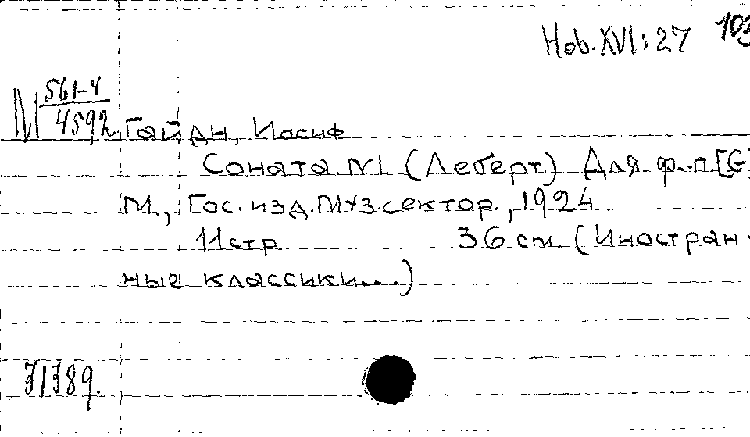 Hob. XVI:27 103
М 561-4
4592
Гайдн, Иосиф
Соната №1 (Леберт) Для ф.-п [G]
М., Гос. изд. Муз. сектор., 1924
11 стр 36 см (Иностран-
ные классики...)
71789.